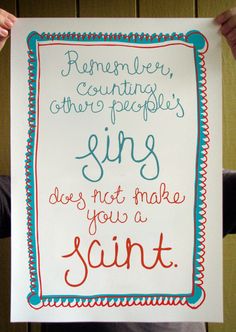 Remember,
counting
other people's
sins
does not make
you a
saint.